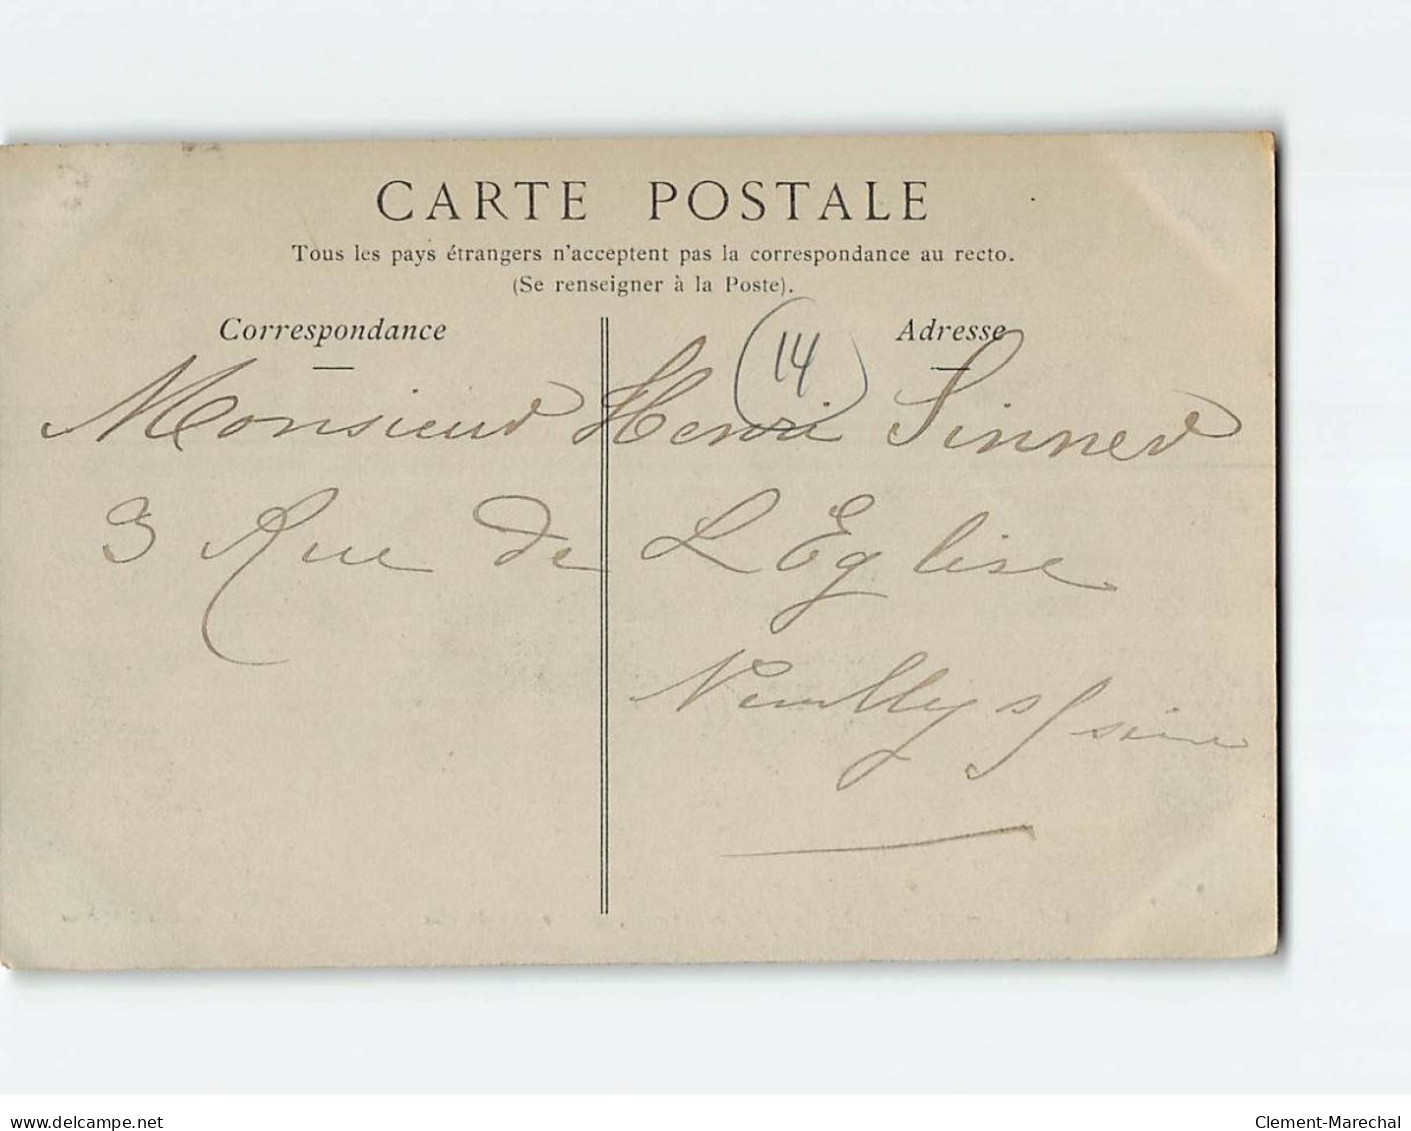 CARTE POSTALE
Tous les pays étrangers n'acceptent pas la correspondance au recto.
(Se renseigner à la Poste).
Correspondance
Adresse
14
Monsieur Henri Sinner
3 Rue de L Eglise
Neuilly s/ seine
www.delcampe.net
Clement-Marechal